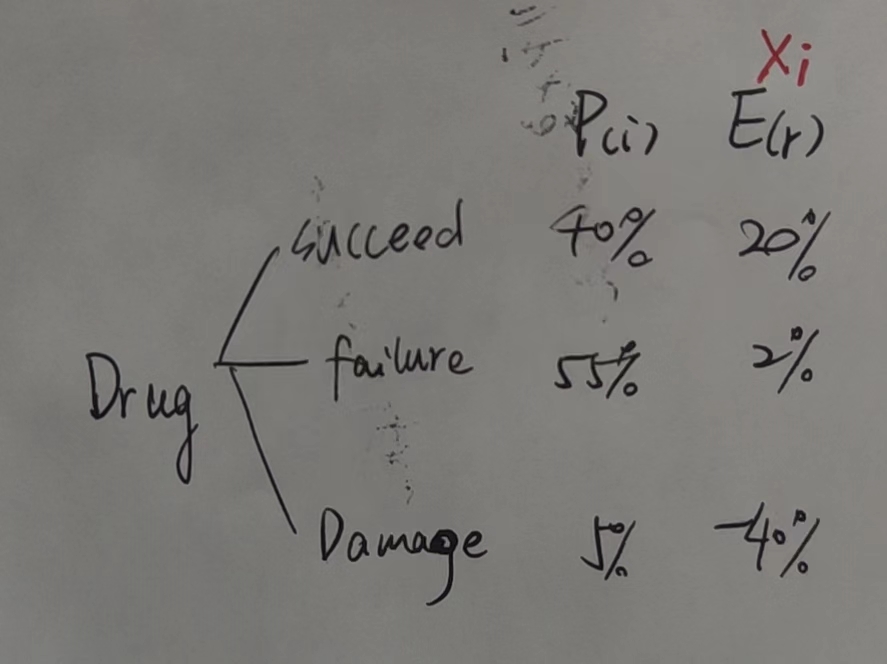 Xi
P(i) E(r)
succeed 40% 20%
Drug failure 55% 2%
Damage 5% -40%